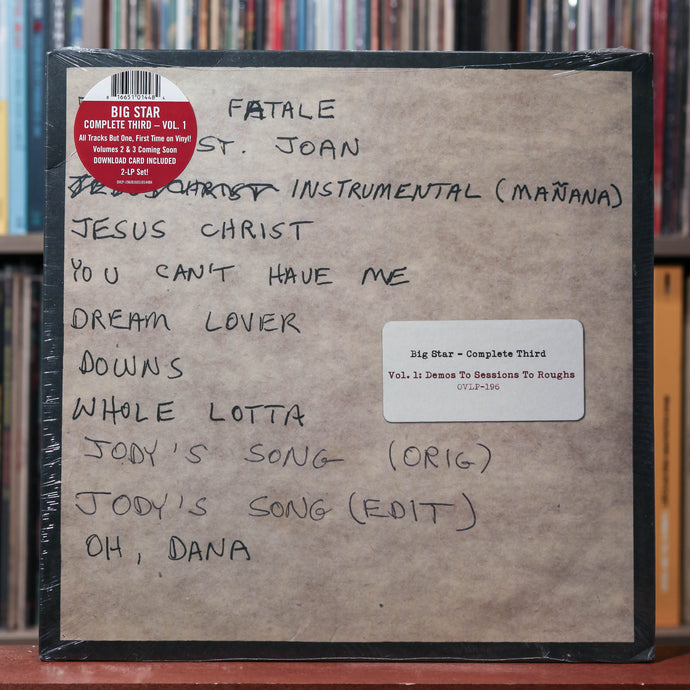 8 16651 01448 4
BIG STAR
COMPLETE THIRD – VOL. 1
All Tracks But One, First Time on Vinyl!
Volumes 2 & 3 Coming Soon
DOWNLOAD CARD INCLUDED
2-LP Set!
FATALE
ST. JOAN
INSTRUMENTAL (MAÑANA)
JESUS CHRIST
YOU CAN'T HAVE ME
DREAM LOVER
DOWNS
WHOLE LOTTA
JODY'S SONG (ORIG)
JODY'S SONG (EDIT)
OH, DANA
Big Star - Complete Third
Vol. 1: Demos To Sessions To Roughs
OVLP-196